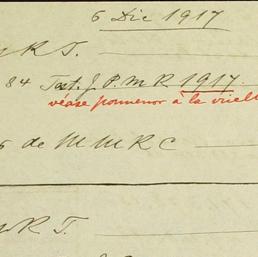 6 Dic 1917
RT.
84 Test. J. P. M. R. 1917.
véase pormenor à la vuelta
de M M R C
RT.